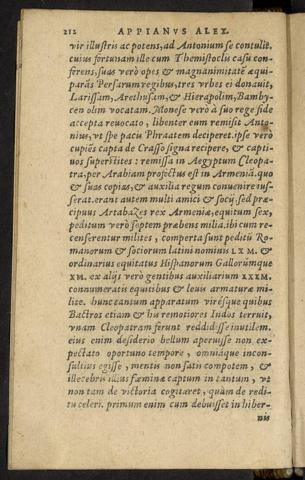 212 APPIANVS ALEX.
vir illustris ac potens, ad Antonium se contulit.
cuius fortunam ille cum Themistoclis casu con-
ferens, suas verò opes & magnanimitatẽ æqui-
parãs Persarum regibus, tres vrbes ei donauit,
Larissam, Arethusam, & Hierapolim, Bamby-
cen olim vocatam. Monese verò à suo rege fide
accepta reuocato, libenter eum remisit Anto-
nius, vt spe pacu Phraatem deciperet. ipse verò
cupiẽs capta de Crasso signa recipere, & capti-
uos superstites: remissa in Aegyptum Cleopa-
tra, per Arabiam profectus est in Armeniã. quo
& suas copias, & auxilia regum conuenire ius-
serat. erant autem multi amici & socij. sed præ-
cipuus Artabazes rex Armeniæ, equitum sex,
peditum verò septem præbens milia. ibi cum re-
censerentur milites, comperta sunt peditũ Ro-
manorum & sociorum latini nominis LX M. &
ordinarius equitatus Hispanorum Gallorúmque
XM. ex alijs verò gentibus auxiliarium XXXM,
connumeratis equitibus & leuis armaturæ mi-
lite. hunc tantum apparatum virésque quibus
Bactros etiam & his remotiores Indos terruit,
vnam Cleopatram ferunt reddidisse inutilem.
eius enim desiderio bellum aperuisse non ex-
pectato oportuno tempore, omniáque incon-
sultius egisse, mentis non satis compotem, &
illecebris illius fœminæ captum in tantum, vt
non tam de victoria cogitaret, quàm de redi-
tu celeri. primum enim cum debuisset in hiber-
nis